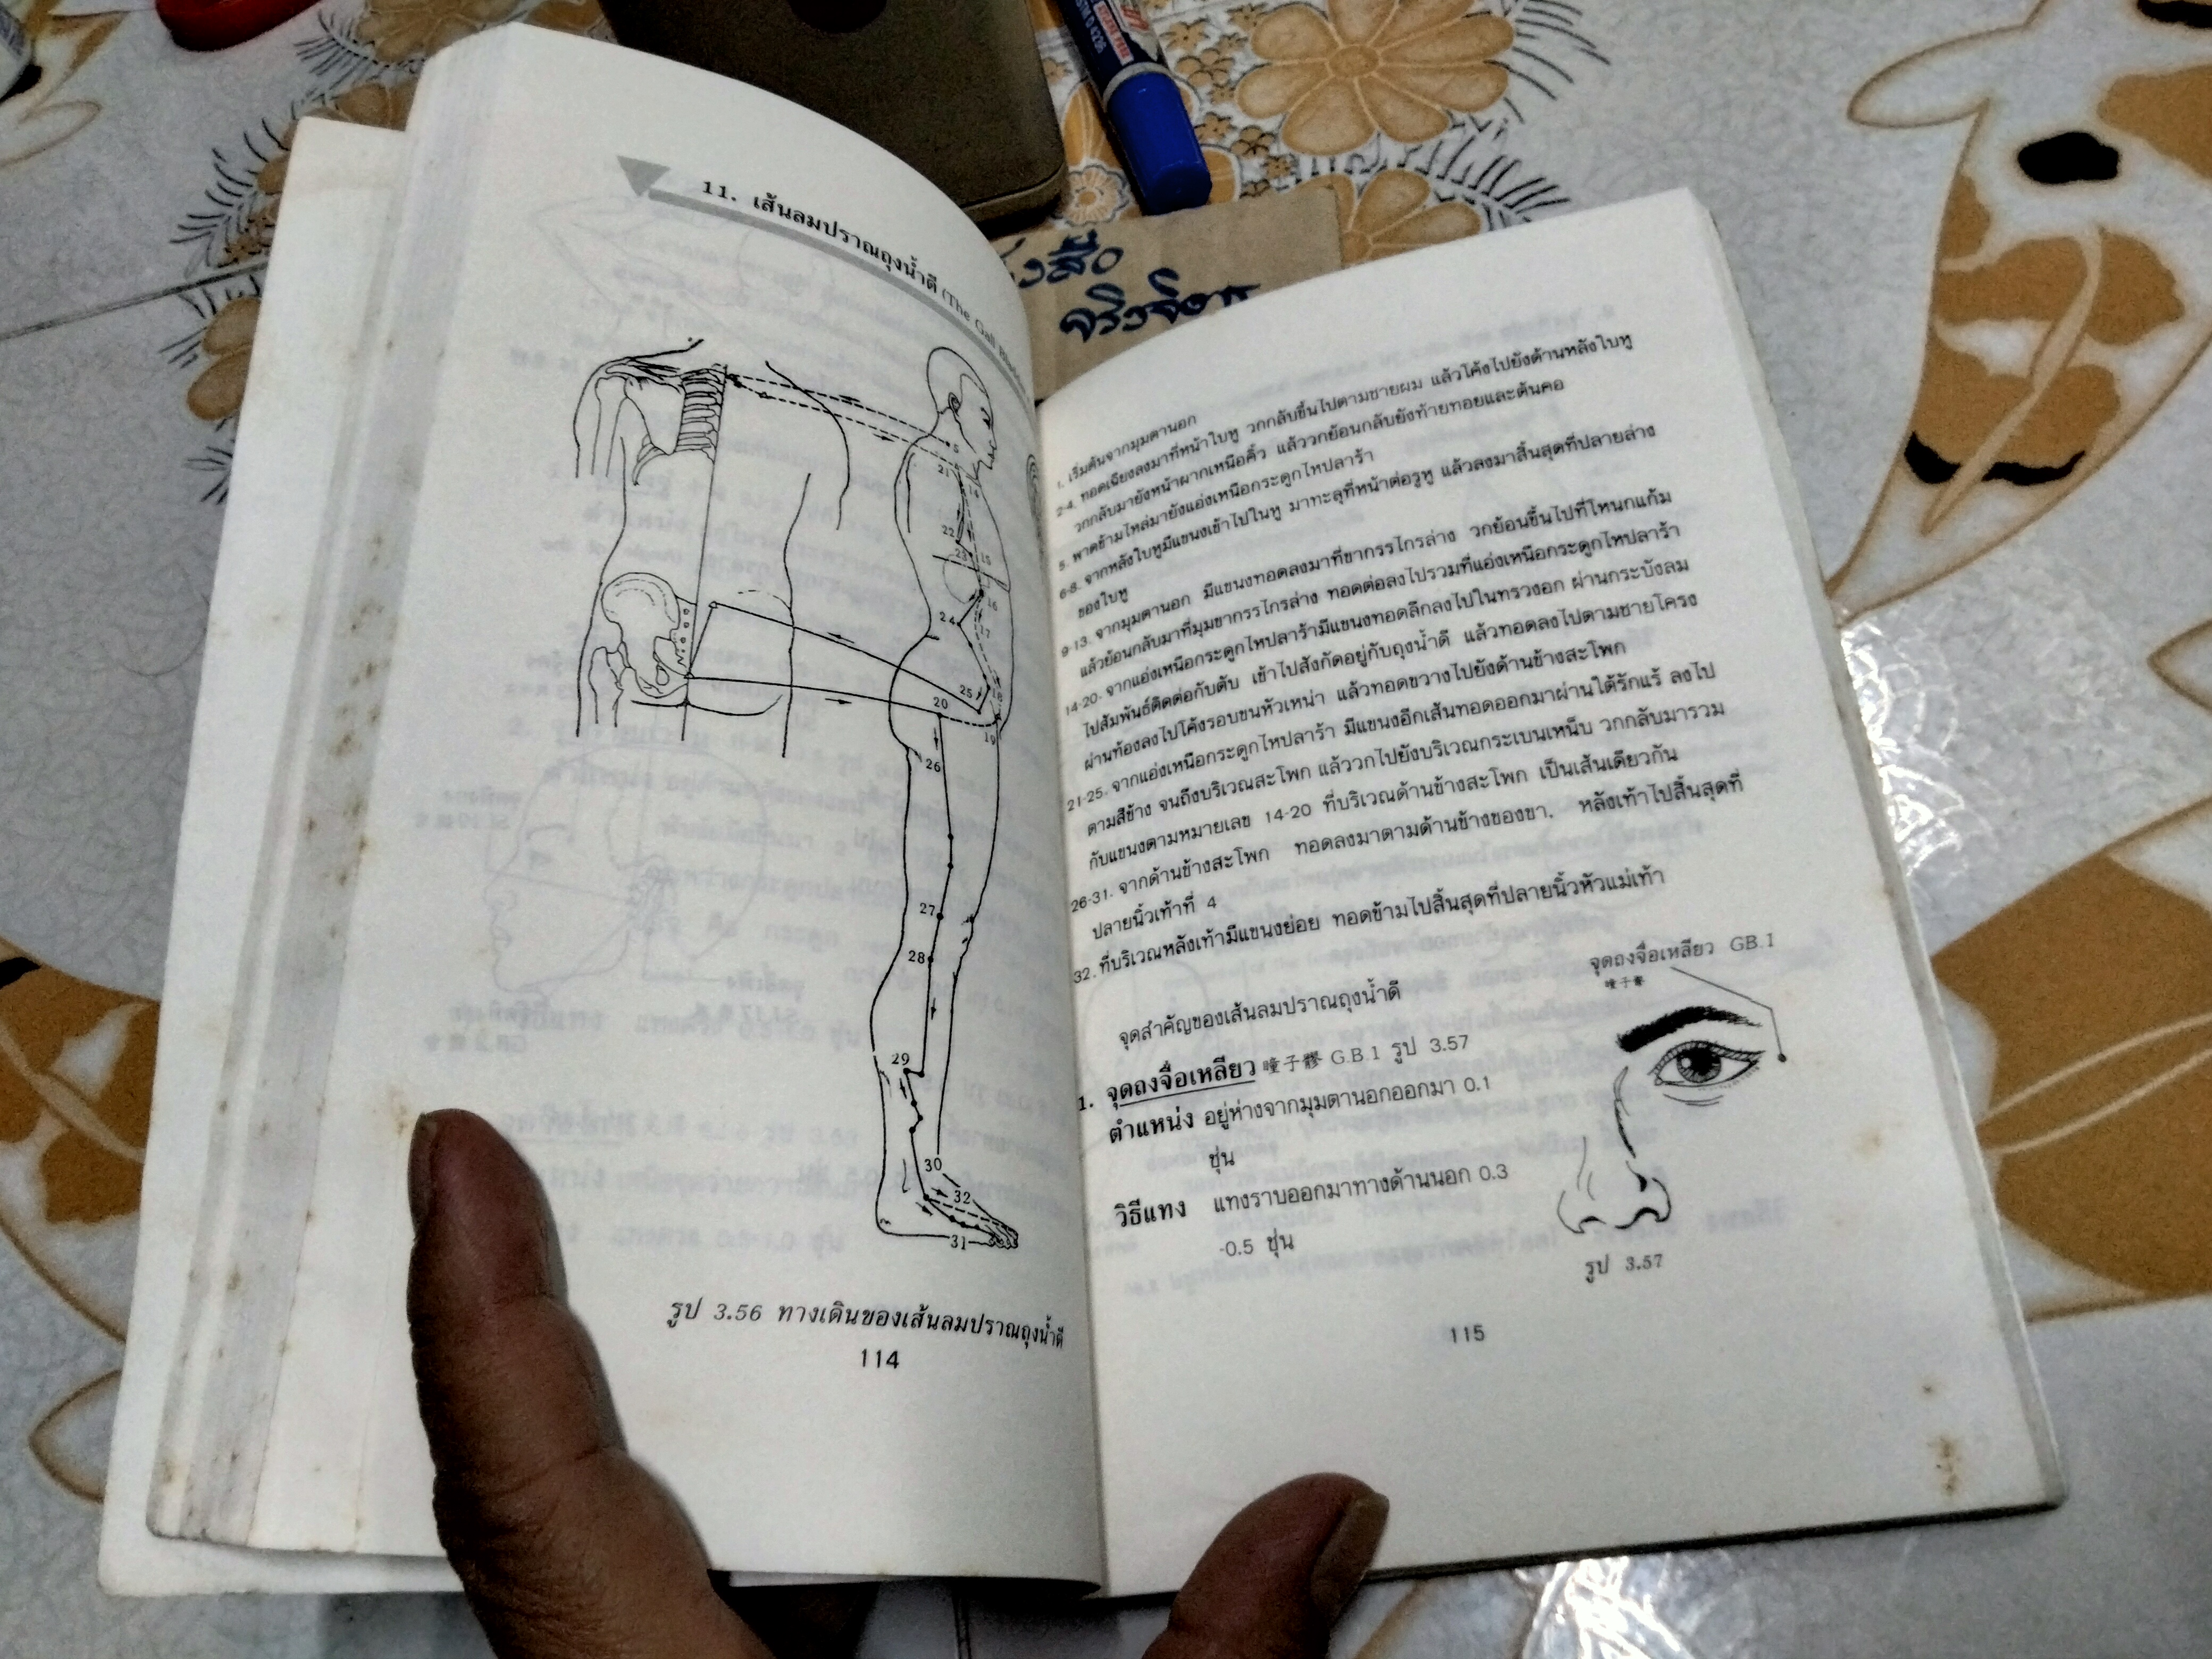 11. เส้นลมปราณถุงน้ำดี (The Gall
5
21
22
23
15
16
24
17
25
18
20
19
26
27
28
29
30
32
31
รูป 3.56 ทางเดินของเส้นลมปราณถุงน้ำดี
114
1. เริ่มต้นจากมุมตานอก
2-4. ทอดเฉียงลงมาที่หน้าใบหู วกกลับขึ้นไปตามชายผม แล้วโค้งไปยังด้านหลังใบหู
วกกลับมายังหน้าผากเหนือคิ้ว แล้ววกย้อนกลับยังท้ายทอยและต้นคอ
5. พาดข้ามไหล่มายังแอ่งเหนือกระดูกไหปลาร้า
6-8. จากหลังใบหูมีแขนงเข้าไปในหู มาทะลุที่หน้าต่อรูหู แล้วลงมาสิ้นสุดที่ปลายล่าง
ของใบหู
9-13. จากมุมตานอก มีแขนงทอดลงมาที่ขากรรไกรล่าง วกย้อนขึ้นไปที่โหนกแก้ม
แล้วย้อนกลับมาที่มุมขากรรไกรล่าง ทอดต่อลงไปรวมที่แอ่งเหนือกระดูกไหปลาร้า
14-20. จากแอ่งเหนือกระดูกไหปลาร้ามีแขนงทอดลึกลงไปในทรวงอก ผ่านกระบังลม
ไปสัมพันธ์ติดต่อกับตับ เข้าไปสังกัดอยู่กับถุงน้ำดี แล้วทอดลงไปตามชายโครง
ผ่านท้องลงไปโค้งรอบขนหัวเหน่า แล้วทอดขวางไปยังด้านข้างสะโพก
21-25. จากแอ่งเหนือกระดูกไหปลาร้า มีแขนงอีกเส้นทอดออกมาผ่านใต้รักแร้ ลงไป
ตามสีข้าง จนถึงบริเวณสะโพก แล้ววกไปยังบริเวณกระเบนเหน็บ วกกลับมารวม
กับแขนงตามหมายเลข 14-20 ที่บริเวณด้านข้างสะโพก เป็นเส้นเดียวกัน
26-31. จากด้านข้างสะโพก ทอดลงมาตามด้านข้างของขา. หลังเท้าไปสิ้นสุดที่
ปลายนิ้วเท้าที่ 4
32. ที่บริเวณหลังเท้ามีแขนงย่อย ทอดข้ามไปสิ้นสุดที่ปลายนิ้วหัวแม่เท้า
จุดสำคัญของเส้นลมปราณถุงน้ำดี
จุดถงจื่อเหลียว GB.1
瞳子髎
1. จุดถงจื่อเหลียว 瞳子髎 G.B.1 รูป 3.57
ตำแหน่ง อยู่ห่างจากมุมตานอกออกมา 0.1
ชุ่น
วิธีแทง แทงราบออกมาทางด้านนอก 0.3
-0.5 ชุ่น
รูป 3.57
115